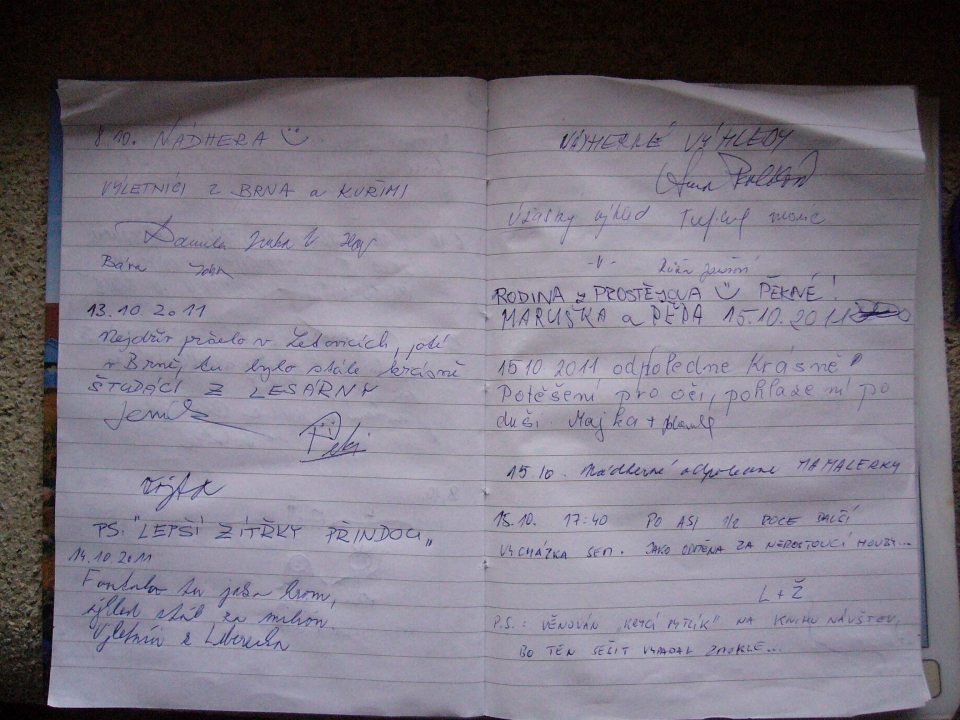 8 10. NÁDHERA
VÝLETNÍCI Z BRNA a KUŘIMI
Bára
13.10 2011
Nejdřív pršelo v Letovicích, poté
v Brně, tu bylo stále krásně
ŠTUDÁCI Z LESÁRNY
PS. "LEPŠÍ ZÍTŘKY PŘÍNDOU„
14.10 2011
tu jako hrom,
výhled stál za milion.
Výletníci z Liberecka
NÁDHERNÉ VÝHLEDY
Úžasný výhled
-"-
RODINA z PROSTĚJOVA PĚKNÉ!
MARUŠKA a PÉPA 15.10.2011
15 10 2011 odpoledne Krásně
Potěšení pro oči, pohlazení po
duši. Majka +
15.10. Nádherné odpoledne MAMALERKY
15.10. 17:40 PO ASI 1/2 ROCE DALŠÍ
VYCHÁZKA SEM. JAKO ODMĚNA ZA NEROSTOUCÍ HOUBY...
L + Ž
P.S.: VĚNOVÁN „KRYCÍ PYTLÍK" NA KNIHU NÁVŠTĚV,
BO TEN SEŠIT VYPADAL ZMOKLE...